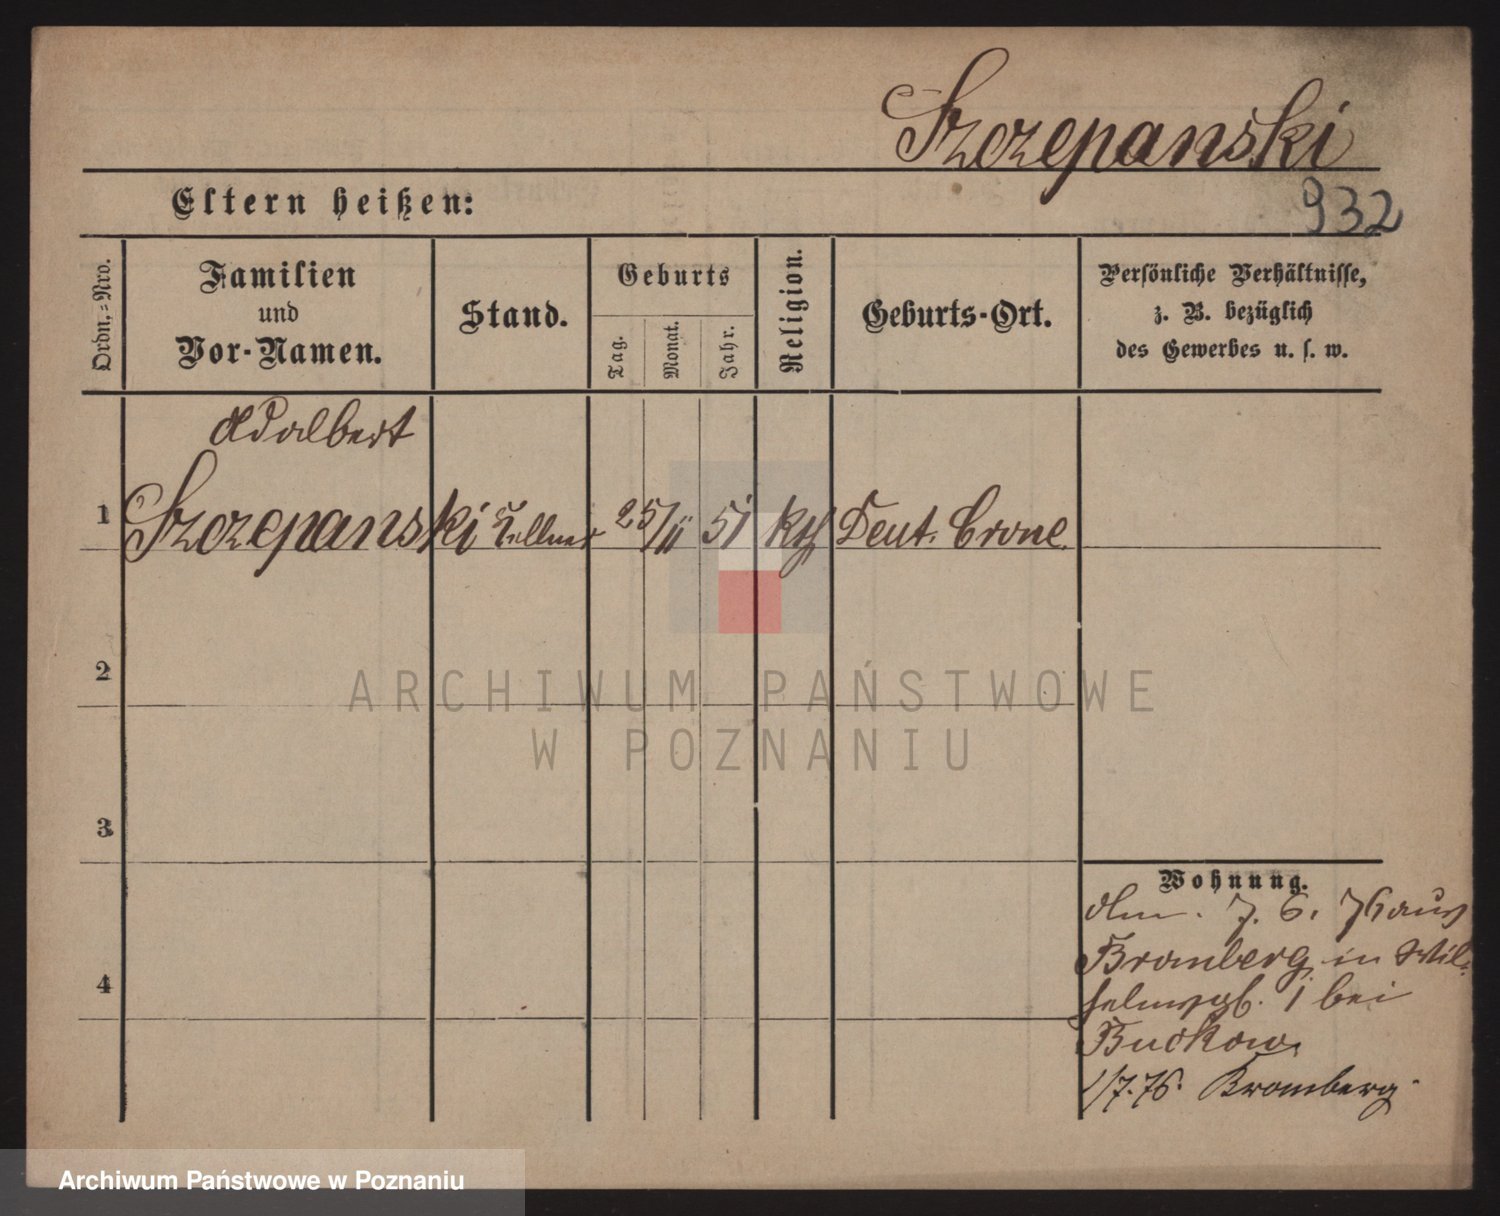 Szczepanski
932
Eltern heißen:
Ordn.-Nro.
Familien
und
Vor-Namen.
Stand.
Geburts
Tag.
Monat.
Jahr.
Religion.
Geburts-Ort.
Persönliche Verhältnisse,
z. B. bezüglich
des Gewerbes u. s. w.
Adalbert
1 Szczepanski Kellner 25/11 51 kth Deut. Crone.
2
3
4
Wohnung.
Am. 7. 6. 76 aus
Bromberg in Wil-
helmspl. 1 bei
Buckow.
1/7.76. Bromberg.
ARCHIWUM PAŃSTWOWE
W POZNANIU
Archiwum Państwowe w Poznaniu